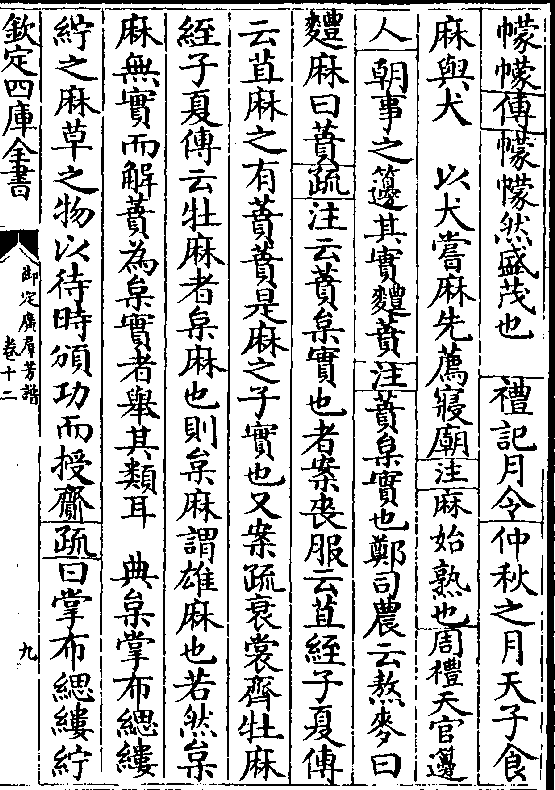 幪幪傳幪幪然盛茂也　禮記月令仲秋之月天子食
麻與犬　以犬嘗麻先薦寢廟注麻始熟也周禮天官籩
人　朝事之籩其實麷蕡注蕡枲實也鄭司農云熬麥曰
麷麻曰蕡疏注云蕡枲實也者案喪服云苴絰子夏傳
云苴麻之有蕡蕡是麻之子實也又案疏衰裳齊牡麻
絰子夏傳云牡麻者枲麻也則枲麻謂雄麻也若然枲
麻無實而解蕡為枲實者舉其類耳　典枲掌布緦縷
紵之麻草之物以待時頒功而授齎疏曰掌布緦縷紵
欽定四庫全書
御定廣羣芳譜
卷十二
九